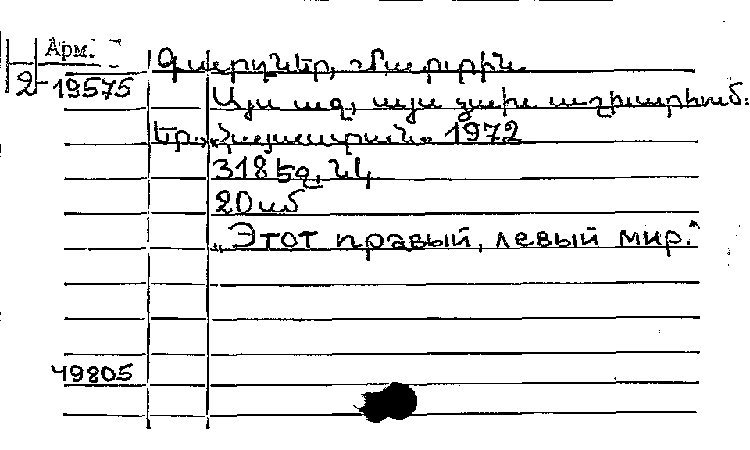 Арм.
2-19575
Գարդներ, Մարտին
Այս աջ, այս ձախ աշխարհում.
Եր., „Հայաստան" 1972
318 էջ, նկ
20 սմ
„Этот правый, левый мир."
49805